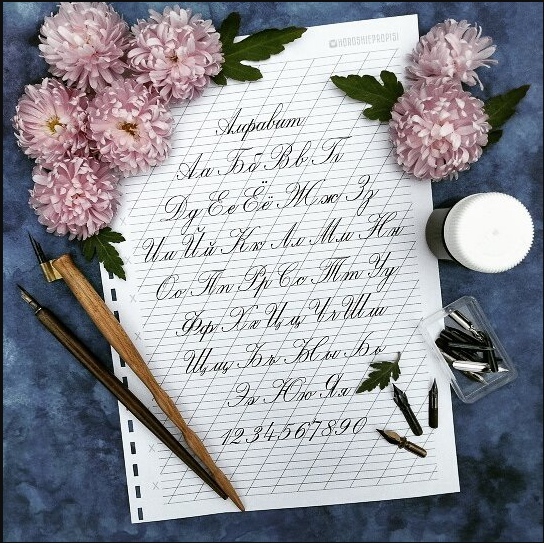 @HOROSHIEPROPISI
Алфавит
Аа Бб Вв Гг
Дд Ее Ёё Жж Зз
Ии Йй Кк Лл Мм Нн
Оо Пп Рр Сс Тт Уу
Фф Хх Цц Чч Шш
Щщ Ъъ Ыы Ьь
Ээ Юю Яя
1234567890